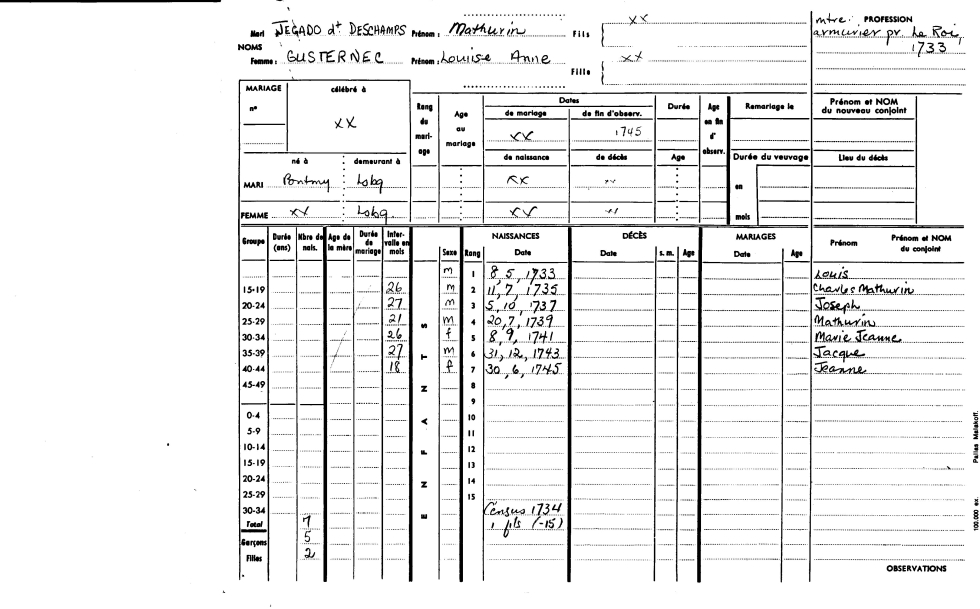 Mari JEGADO dt DESCHAMPS Prénom : Mathurin Fils { xx
mtre. PROFESSION
armurier pr Le Roi,
1733
NOMS
Femme : GUSTERNEC Prénom : Louise Anne Fille { xx
MARIAGE
n°
célébré à
xx
Rang du mari- age
Age au mariage
Dates
de mariage
xx
de fin d'observ.
1745
Durée
Age en fin d' observ.
Remariage le
Prénom et NOM du nouveau conjoint
né à demeurant à
de naissance de décès Age Durée du veuvage Lieu du décès
MARI Pontmy Lobq xx xx en
FEMME xx Lobq. xx xx mois
Groupe Durée (ans) Nbre de nais. Age de la mère Durée de mariage Inter- valle en mois Sexe Rang NAISSANCES Date DÉCÈS Date s. m. Age MARIAGES Date Age Prénom Prénom et NOM du conjoint
E N F A N T S
m 1 8, 5, 1733 Louis
15-19 26 m 2 11, 7, 1735 Charles Mathurin
20-24 27 m 3 5, 10, 1737 Joseph
25-29 21 m 4 20, 7, 1739 Mathurin
30-34 26 f 5 8, 9, 1741 Marie Jeanne
35-39 27 m 6 31, 12, 1743 Jacque
40-44 18 f 7 30, 6, 1745 Jeanne
45-49 8
9
0-4 10
5-9 11
10-14 12
15-19 13
20-24 14
25-29 15
30-34 Census 1734
Total 7 1 fils (-15)
Garçons 5
Filles 2
OBSERVATIONS
100.000 ex. Pallas Malakoff.